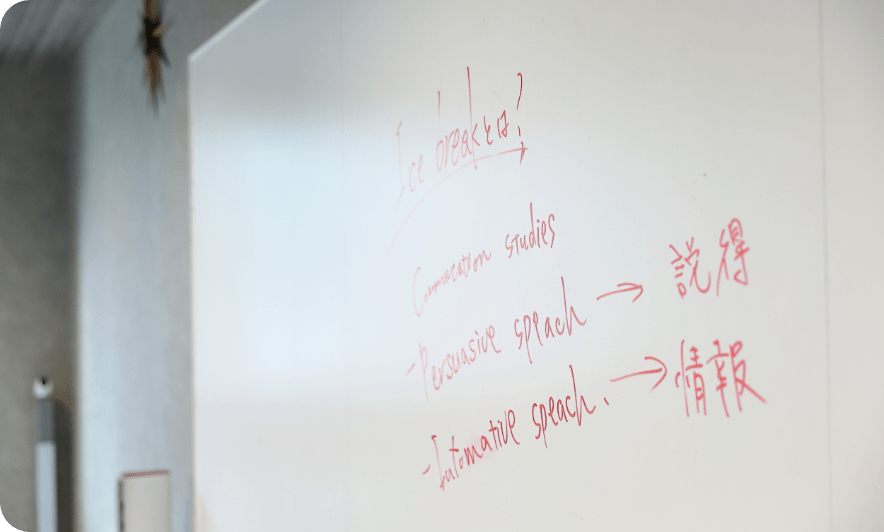 Ice breakとは?
Communication studies
- Persuasive speach → 説得
- Informative speach. → 情報